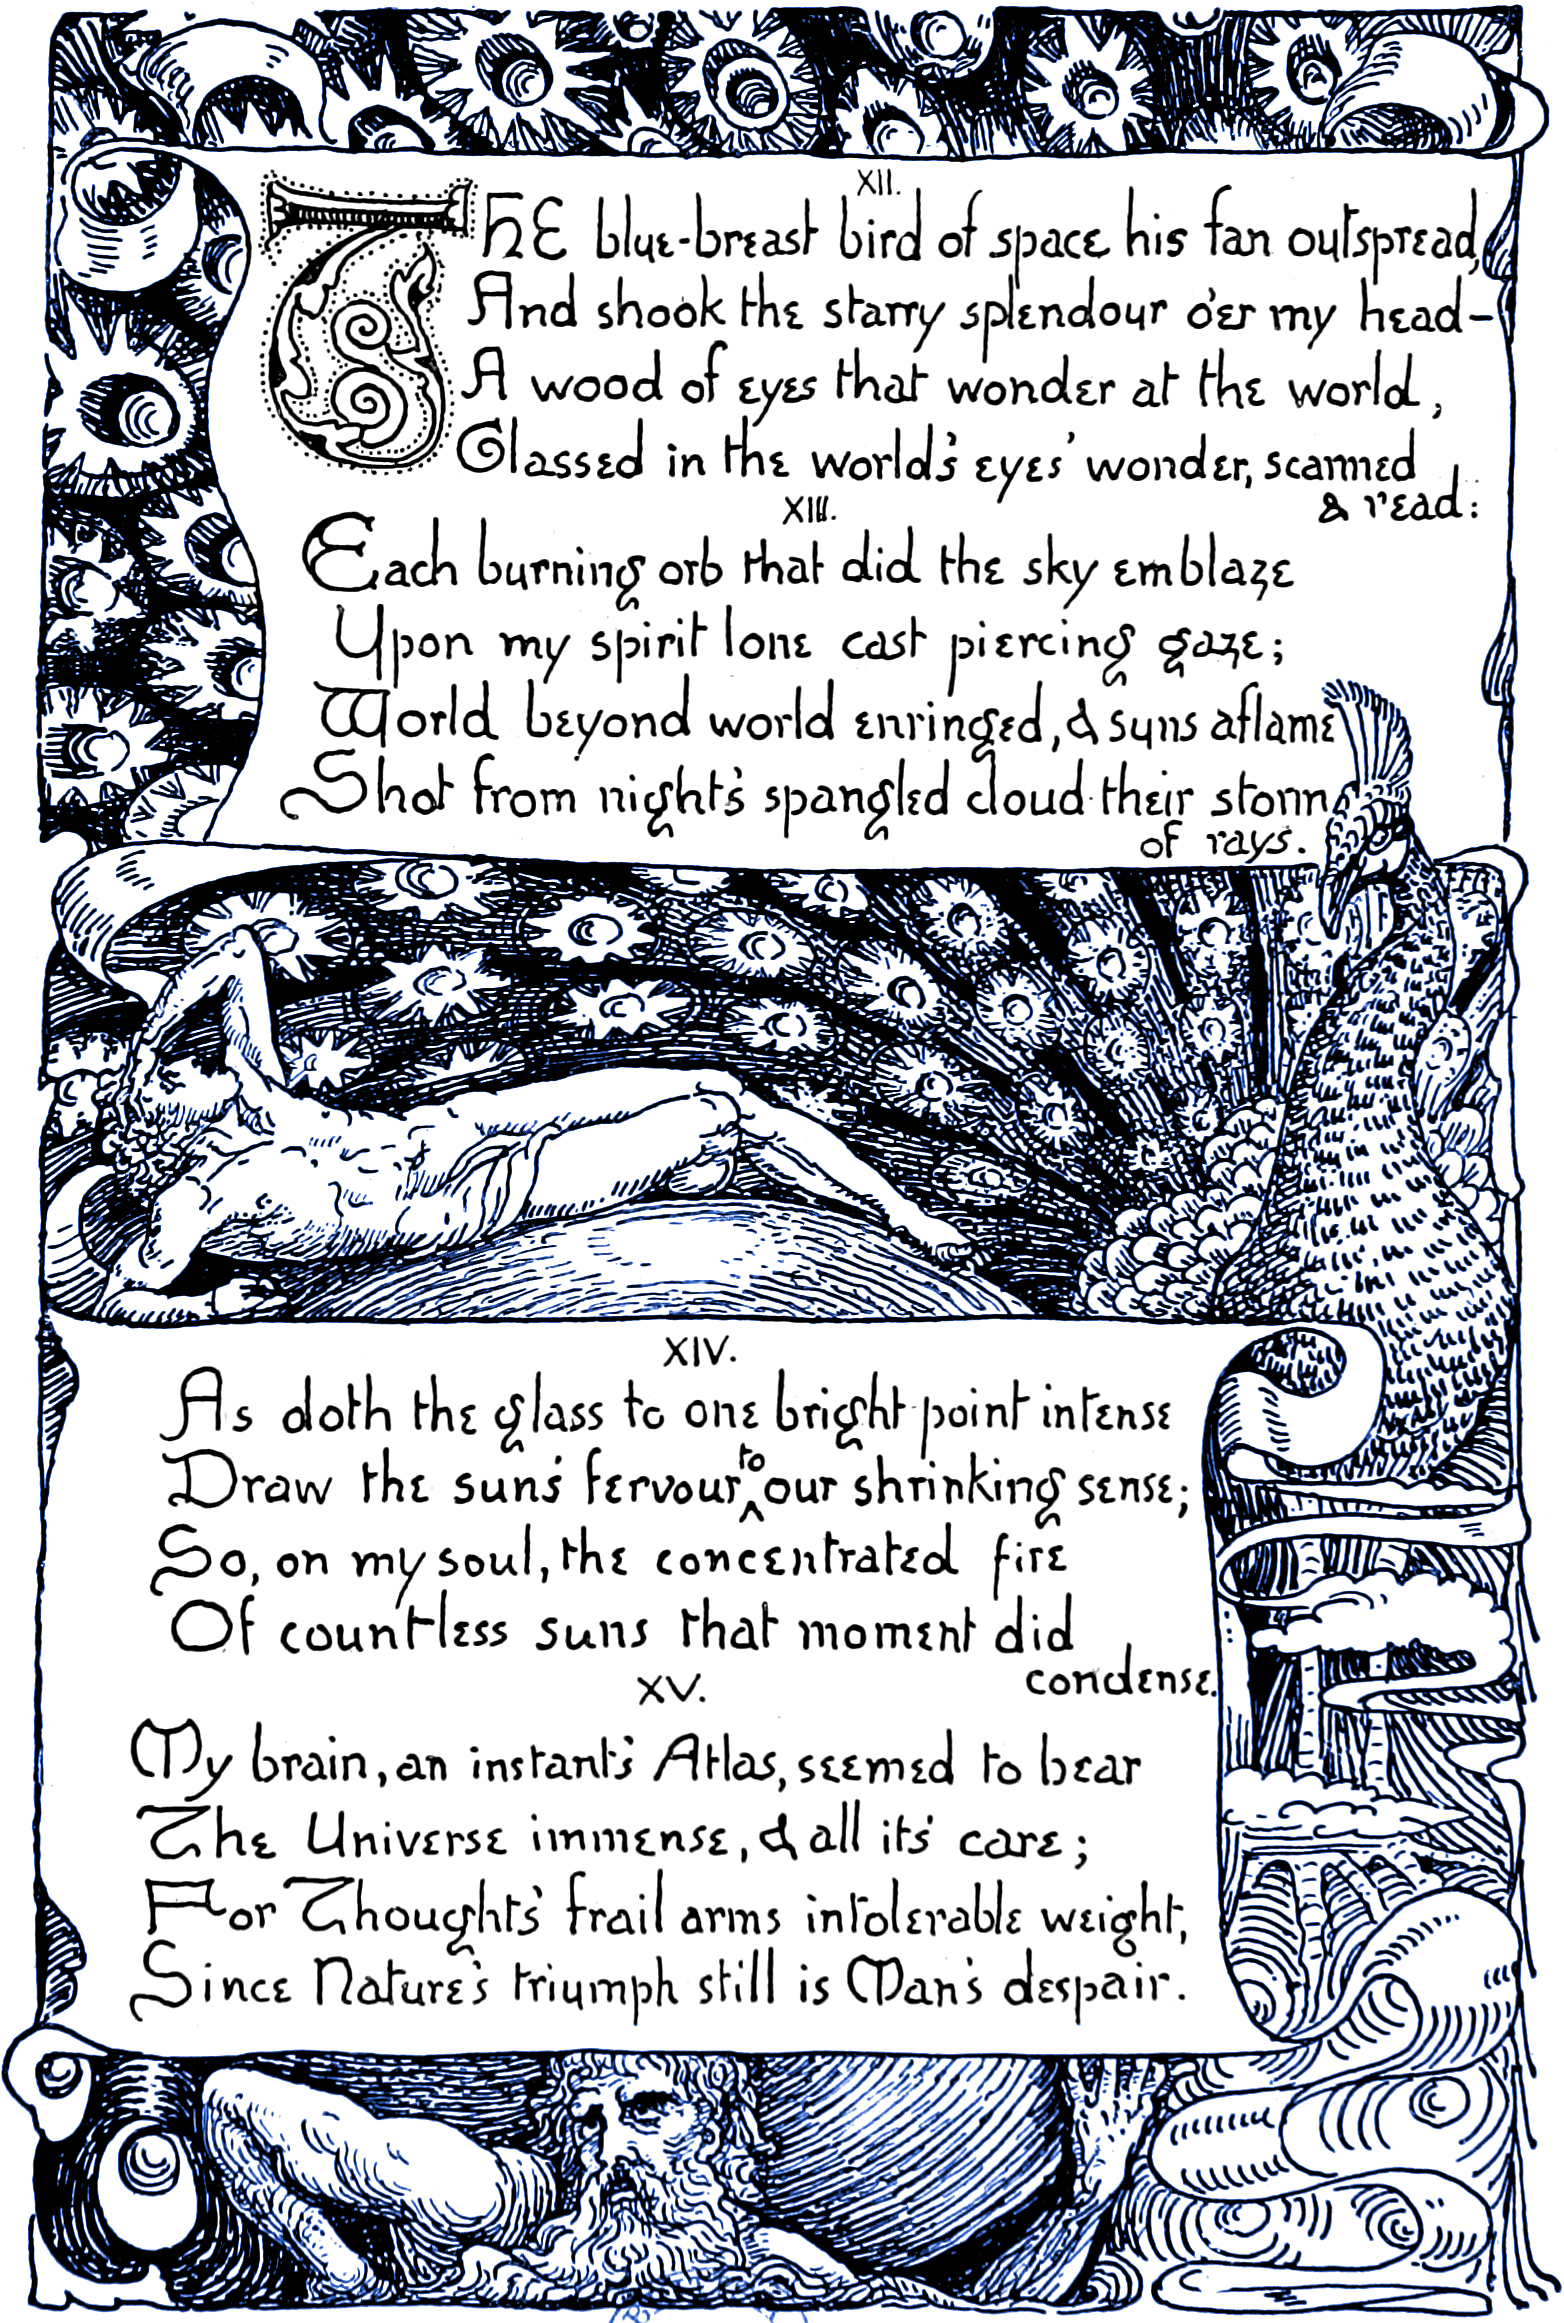 XII.
THE blue-breast bird of space his fan outspread,
And shook the starry splendour o'er my head–
A wood of eyes that wonder at the world,
Glassed in the world's eyes' wonder, scanned
& read:
XIII.
Each burning orb that did the sky emblaze
Upon my spirit lone cast piercing gaze;
World beyond world enringed, & suns aflame
Shot from night's spangled cloud their storm
of rays.
XIV.
As doth the glass to one bright point intense
Draw the sun's fervour to our shrinking sense;
So, on my soul, the concentrated fire
Of countless suns that moment did
condense.
XV.
My brain, an instant's Atlas, seemed to bear
The Universe immense, & all its' care;
For Thought's frail arms intolerable weight,
Since Nature's triumph still is Man's despair.